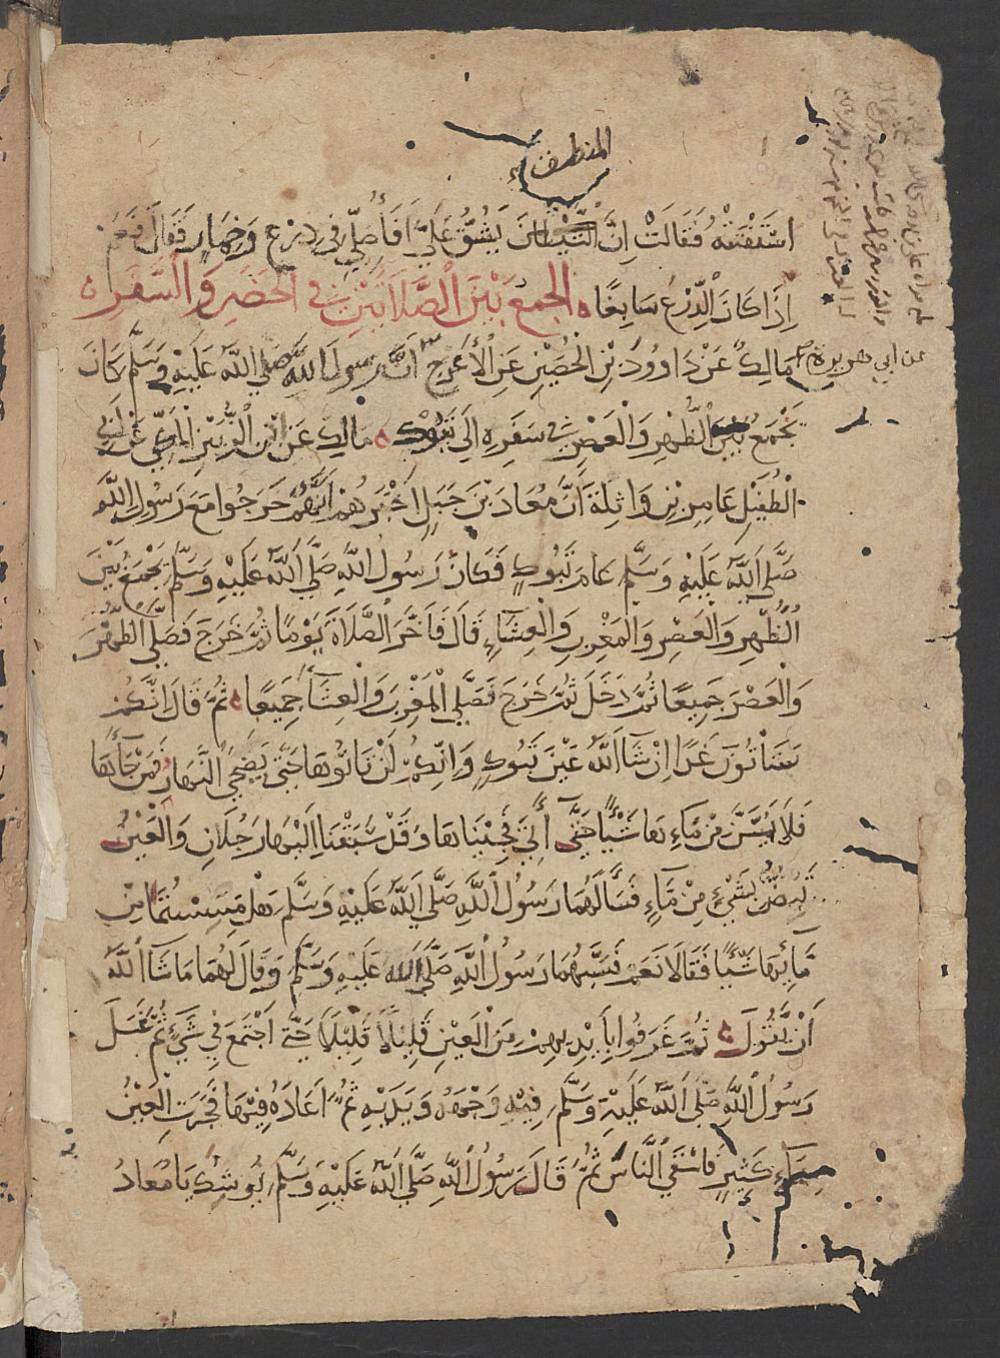 المنطق
استفتته فقالت ان المنطق يشق علي افاصلي في درع وخمار فقال نعم
اذا كان الدرع سابغا ه الجمع بين الصلاتين في الحضر والسفر ه
عن ابي هريرة
مالك عن داوود بن الحصين عن الأعرج ان رسول الله صلى الله عليه وسلم كان
يجمع بين الظهر والعصر في سفره الى تبوك ه مالك عن ابن الزبير المكي عن ابي
الطفيل عامر بن واثلة أن معاذ بن جبل اخبرهم انهم خرجوا مع رسول الله
صلى الله عليه وسلم عام تبوك فكان رسول الله صلى الله عليه وسلم يجمع بين
الظهر والعصر والمغرب والعشاء قال فاخر الصلاة يوما ثم خرج فصلى الظهر
والعصر جميعا ثم دخل ثم خرج فصلى المغرب والعشا جميعا ه ثم قال انكم
ستاتون غدا ان شا الله عين تبوك وانكم لن تاتوها حتى يضحي النهار فمن جآها
فلا يمسن من مآءها شيئا حتى آتي فجئناها وقد سبقنا اليها رجلان والعين
تبض بشيء من مآء فسألهما رسول الله صلى الله عليه وسلم هل مسستما من
مآئها شيئا فقالا نعم فسبهما رسول الله صلى الله عليه وسلم وقال لهما ما شا الله
أن يقول ه ثم غرفوا بأيديهم من العين قليلا قليلا حتى اجتمع في شيء ثم غسل
رسول الله صلى الله عليه وسلم فيه وجهه ويديه ثم اعاده فيها فجرت العين
بمآء كثير فاستقي الناس ثم قال رسول الله صلى الله عليه وسلم يوشك يا معاذ